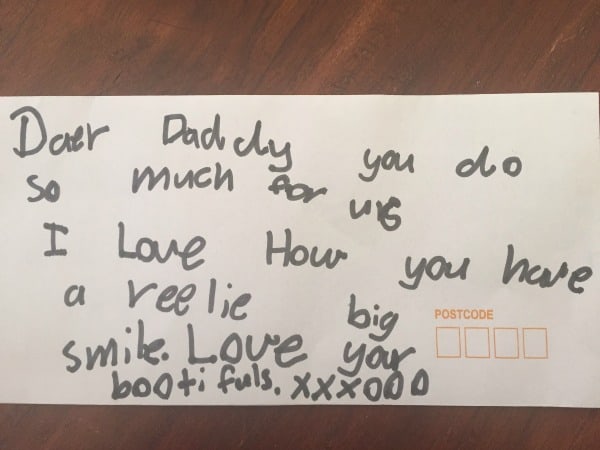 Daer Daddy you do
so much for urs
I Love How you have
a reelie big
POSTCODE
smile. Love your
bootifuls. xxxooo